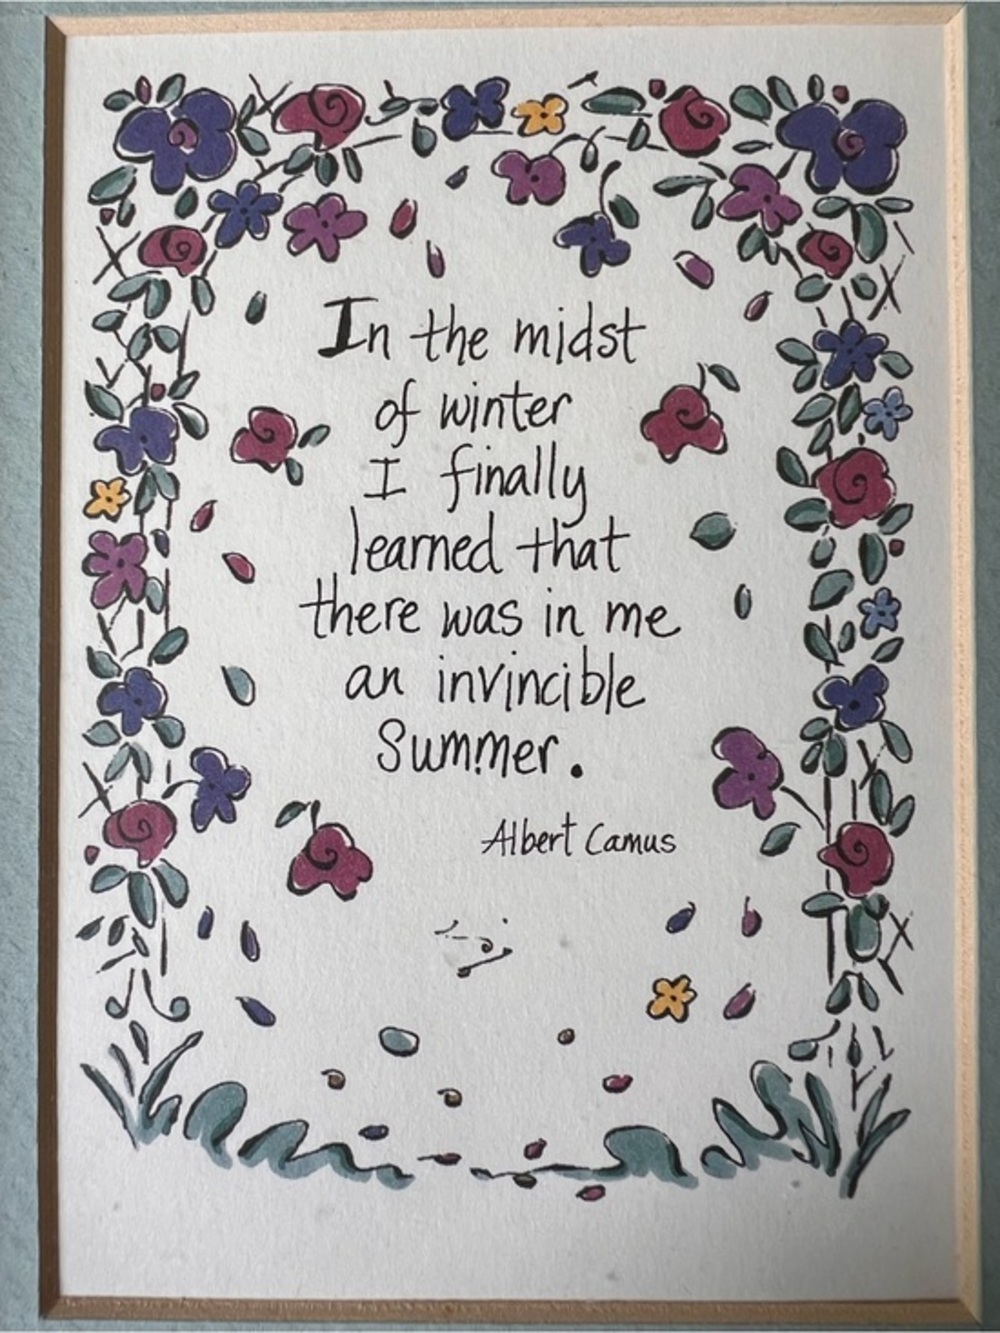 In the midst
of winter
I finally
learned that
there was in me
an invincible
Summer.
Albert Camus